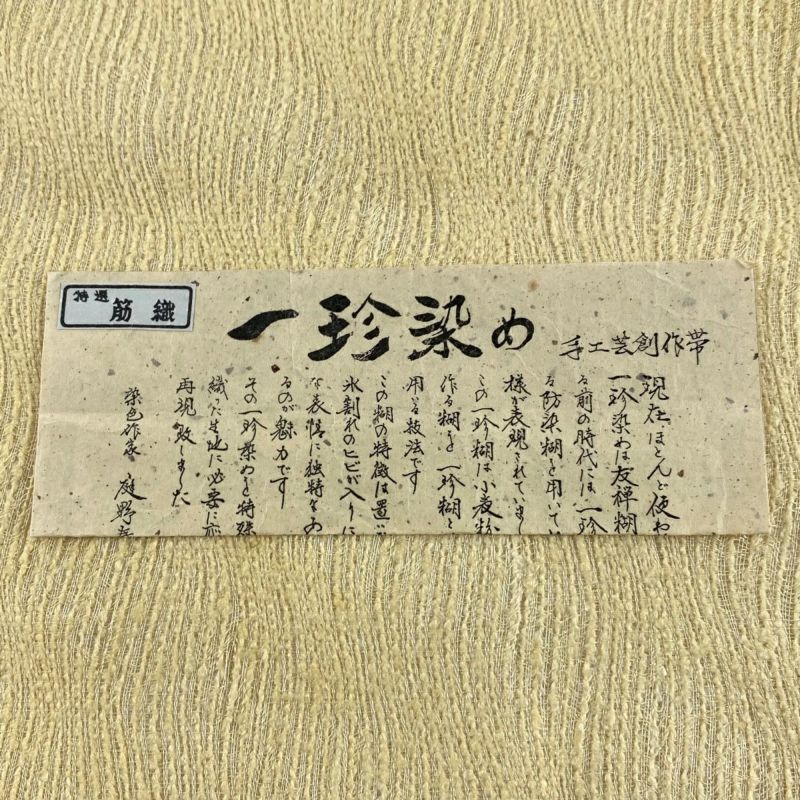 特選
筋織
一珍染め
手工芸創作帯
現在ほとんど使わ
一珍染めは友禅糊
る前の時代には一珍
る防染糊を用いてい
様が表現されていまし
この一珍糊は小麦粉
作る糊を一珍糊と
用いる技法です
この糊の特徴は置い
氷割れのヒビが入りに
な表情に独特なあ
るのが魅力です
その一珍染めを特殊
織った生地に必要に応
再現致しました
染色作家 庭野